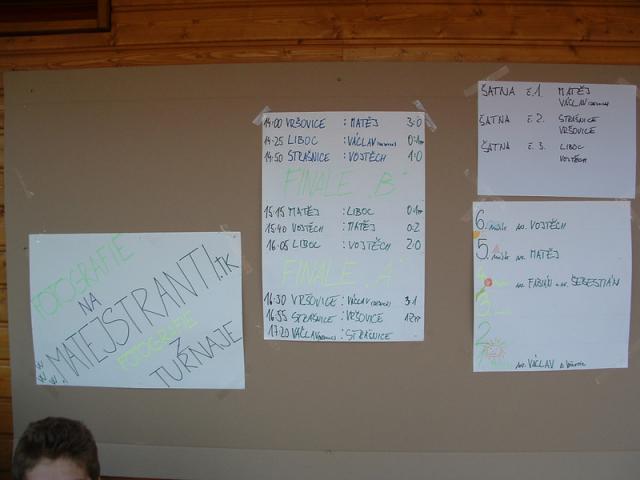 FOTOGRAFIE
NA
MATEJSTRANTI.tK
FOTOGRAFIE
Z
TURNAJE
14:00 VRŠOVICE : MATĚJ 3:0
14:25 LIBOC : VÁCLAV
14:50 STRAŠNICE : VOJTĚCH 1:0
FINALE "B"
15:15 MATĚJ : LIBOC
15:40 VOJTĚCH : MATĚJ 0:2
16:05 LIBOC : VOJTĚCH 2:0
FINALE "A"
16:30 VRŠOVICE : VÁCLAV 3:1
16:55 STRAŠNICE : VRŠOVICE
17:20 VÁCLAV : STRAŠNICE
ŠATNA č.1. MATĚJ
VÁCLAV
ŠATNA č.2. STRAŠNICE
VRŠOVICE
ŠATNA č.3. LIBOC
VOJTĚCH
6. místo sv. VOJTĚCH
5. místo sv. MATĚJ
4. sv. FABIÁN a sv. ŠEBESTIÁN
3.
2.
1. sv. VÁCLAV